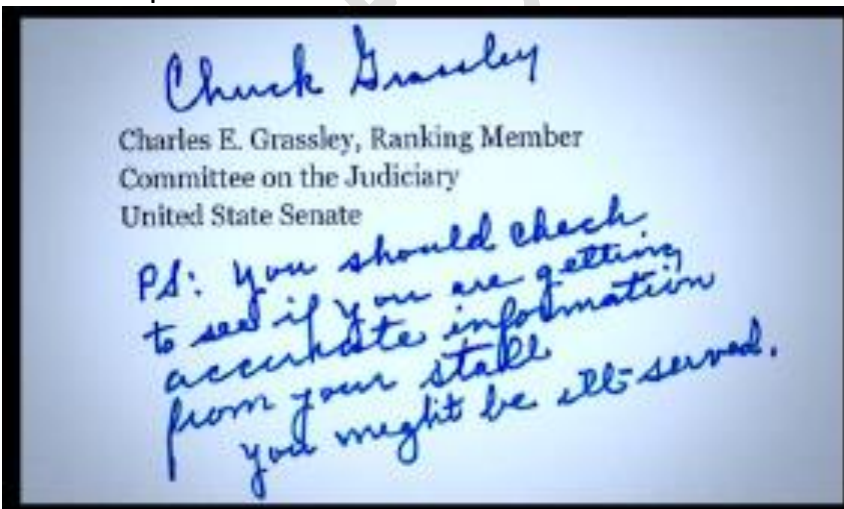 Chuck Grassley
Charles E. Grassley, Ranking Member
Committee on the Judiciary
United State Senate
PS: You should check
to see if you are getting
accurate information
from your staff
you might be ill-served.